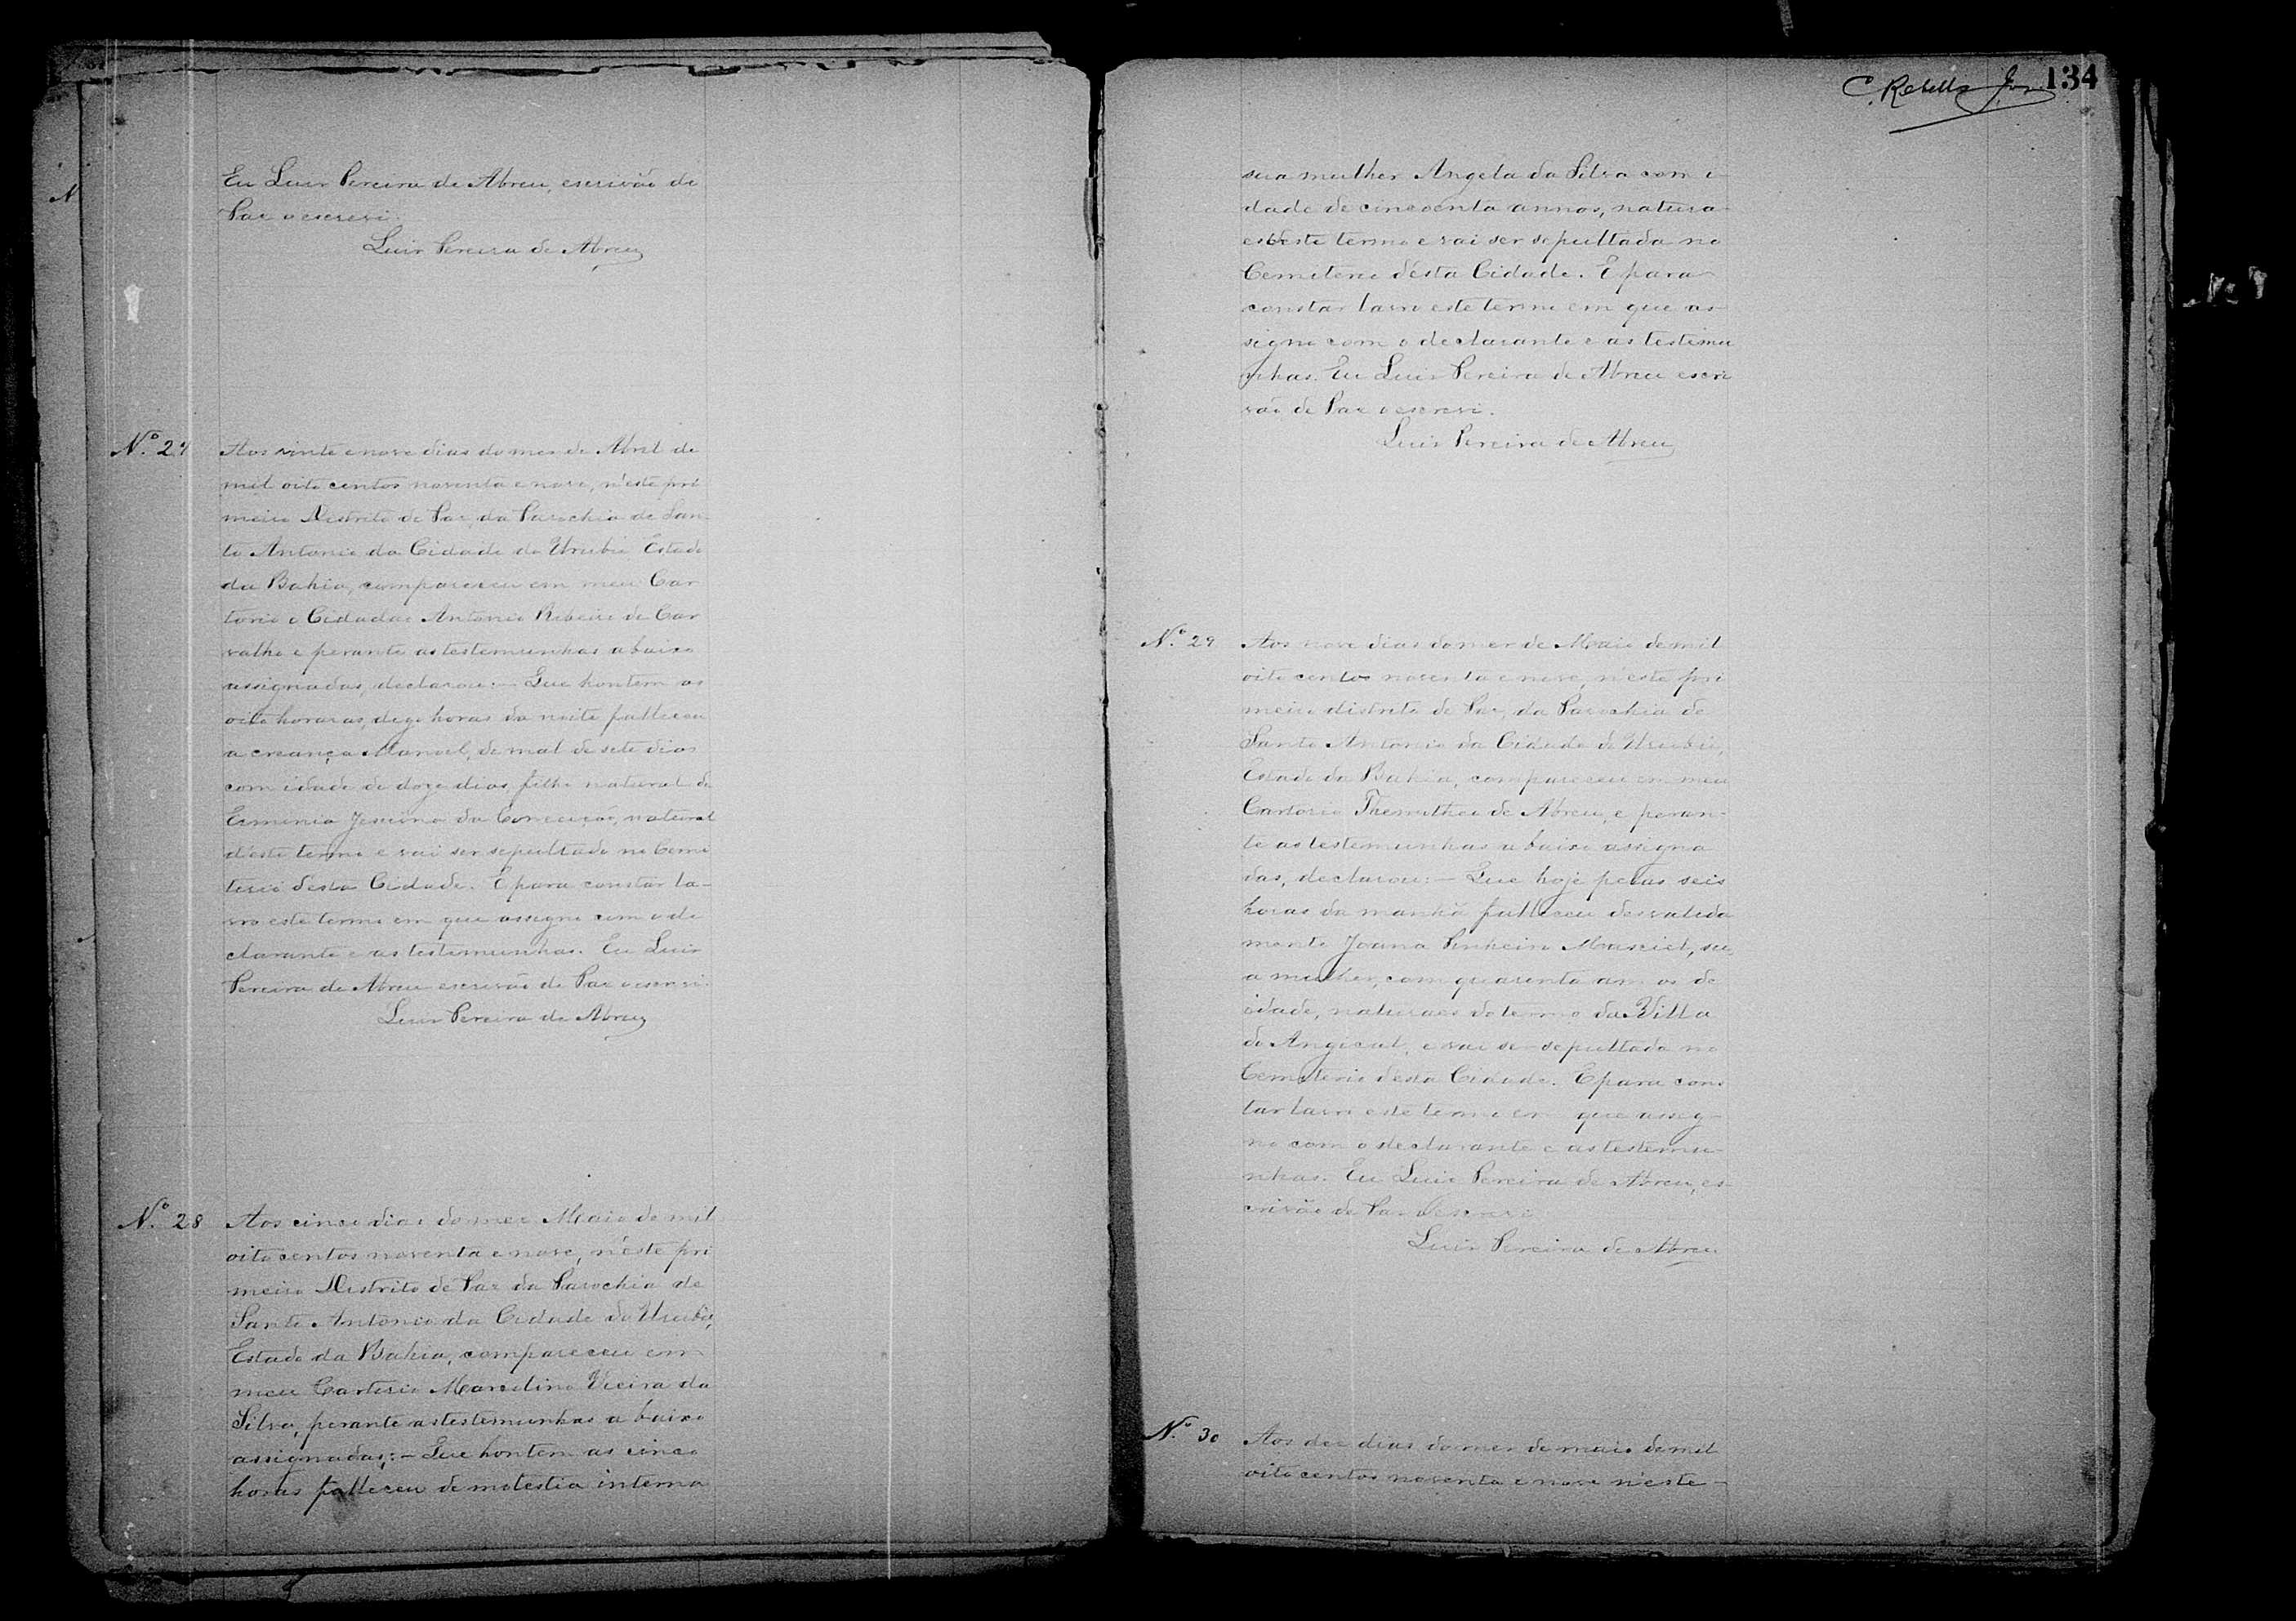 Eu Luis Pereira de Abreu, escrivão de
Paz o escrevi.
Luis Pereira de Abreu
Nº 27
Aos vinte e nove dias do mes de Abril de
mil oito centos noventa e nove, n'este pri
meiro Districto de Paz da Parochia de San
to Antonio da Cidade do Urubú Estado
da Bahia, compareceu em meu Car
torio o Cidadão Antonio Ribeiro de Car
valho e perante as testemunhas abaixo
assignadas, declarou: – Que hontem as
oito horas as, digo horas da noite falleceu
a creança Manoel, de mal de sete dias
com idade de doze dias filho natural de
Erminia Jesuina da Conceição, natural
d'este termo e vai ser sepultado no Cemi
terio desta Cidade. E para constar la-
vro este termo em que assigno com o de
clarante e as testemunhas. Eu Luis
Pereira de Abreu escrivão de Paz o escrevi.
Luis Pereira de Abreu
Nº 28
Aos cinco dias do mez Maio de mil
oito centos noventa e nove, n'este pri
meiro Districto de Paz da Parochia de
Santo Antonio da Cidade do Urubú,
Estado da Bahia, compareceu em
meu Cartorio Marcelino Vieira da
Silva, perante as testemunhas a baixo
assignadas: – Que hontem as cinco
horas falleceu de molestia interna
134
sua mulher Angela da Silva com i
dade de cincoenta annos, natura
es deste termo e vai ser sepultada no
Cemiterio d'esta Cidade. E para
constar lavro este termo em que as
signo com o declarante e as testemu
nhas. Eu Luis Pereira de Abreu escri
vão de Paz o escrevi.
Luis Pereira de Abreu
Nº 29
Aos nove dias do mez de Maio de mil
oito centos noventa e nove, n'este pri
meiro districto de Paz, da Parochia de
Santo Antonio da Cidade do Urubú,
Estado da Bahia, compareceu em meu
Cartorio de Abreu, e peran-
te as testemunhas a baixo assigna
das, declarou: – Que hoje pelas seis
horas da manhã falleceu desvalida
mente Joana Pinheiro Masciel, su
a mulher, com quarenta annos de
idade, naturaes do termo da Villa
do Angical, e vai ser sepultada no
Cemiterio desta Cidade. E para cons
tar lavro este termo em que assig-
no com o declarante e as testemu-
nhas. Eu Luis Pereira de Abreu, es-
crivão de Paz o escrevi
Luis Pereira de Abreu
Nº 30
Aos dez dias do mez de maio de mil
oito centos noventa e nove n'este –